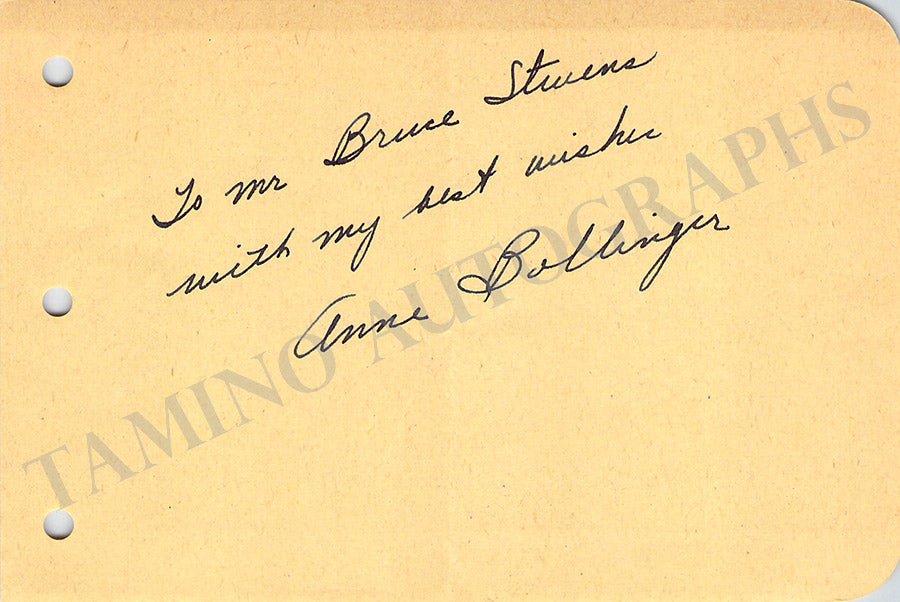 To Mr Bruce Stevens
with my best wishes
Anne Bollinger
TAMINO AUTOGRAPHS